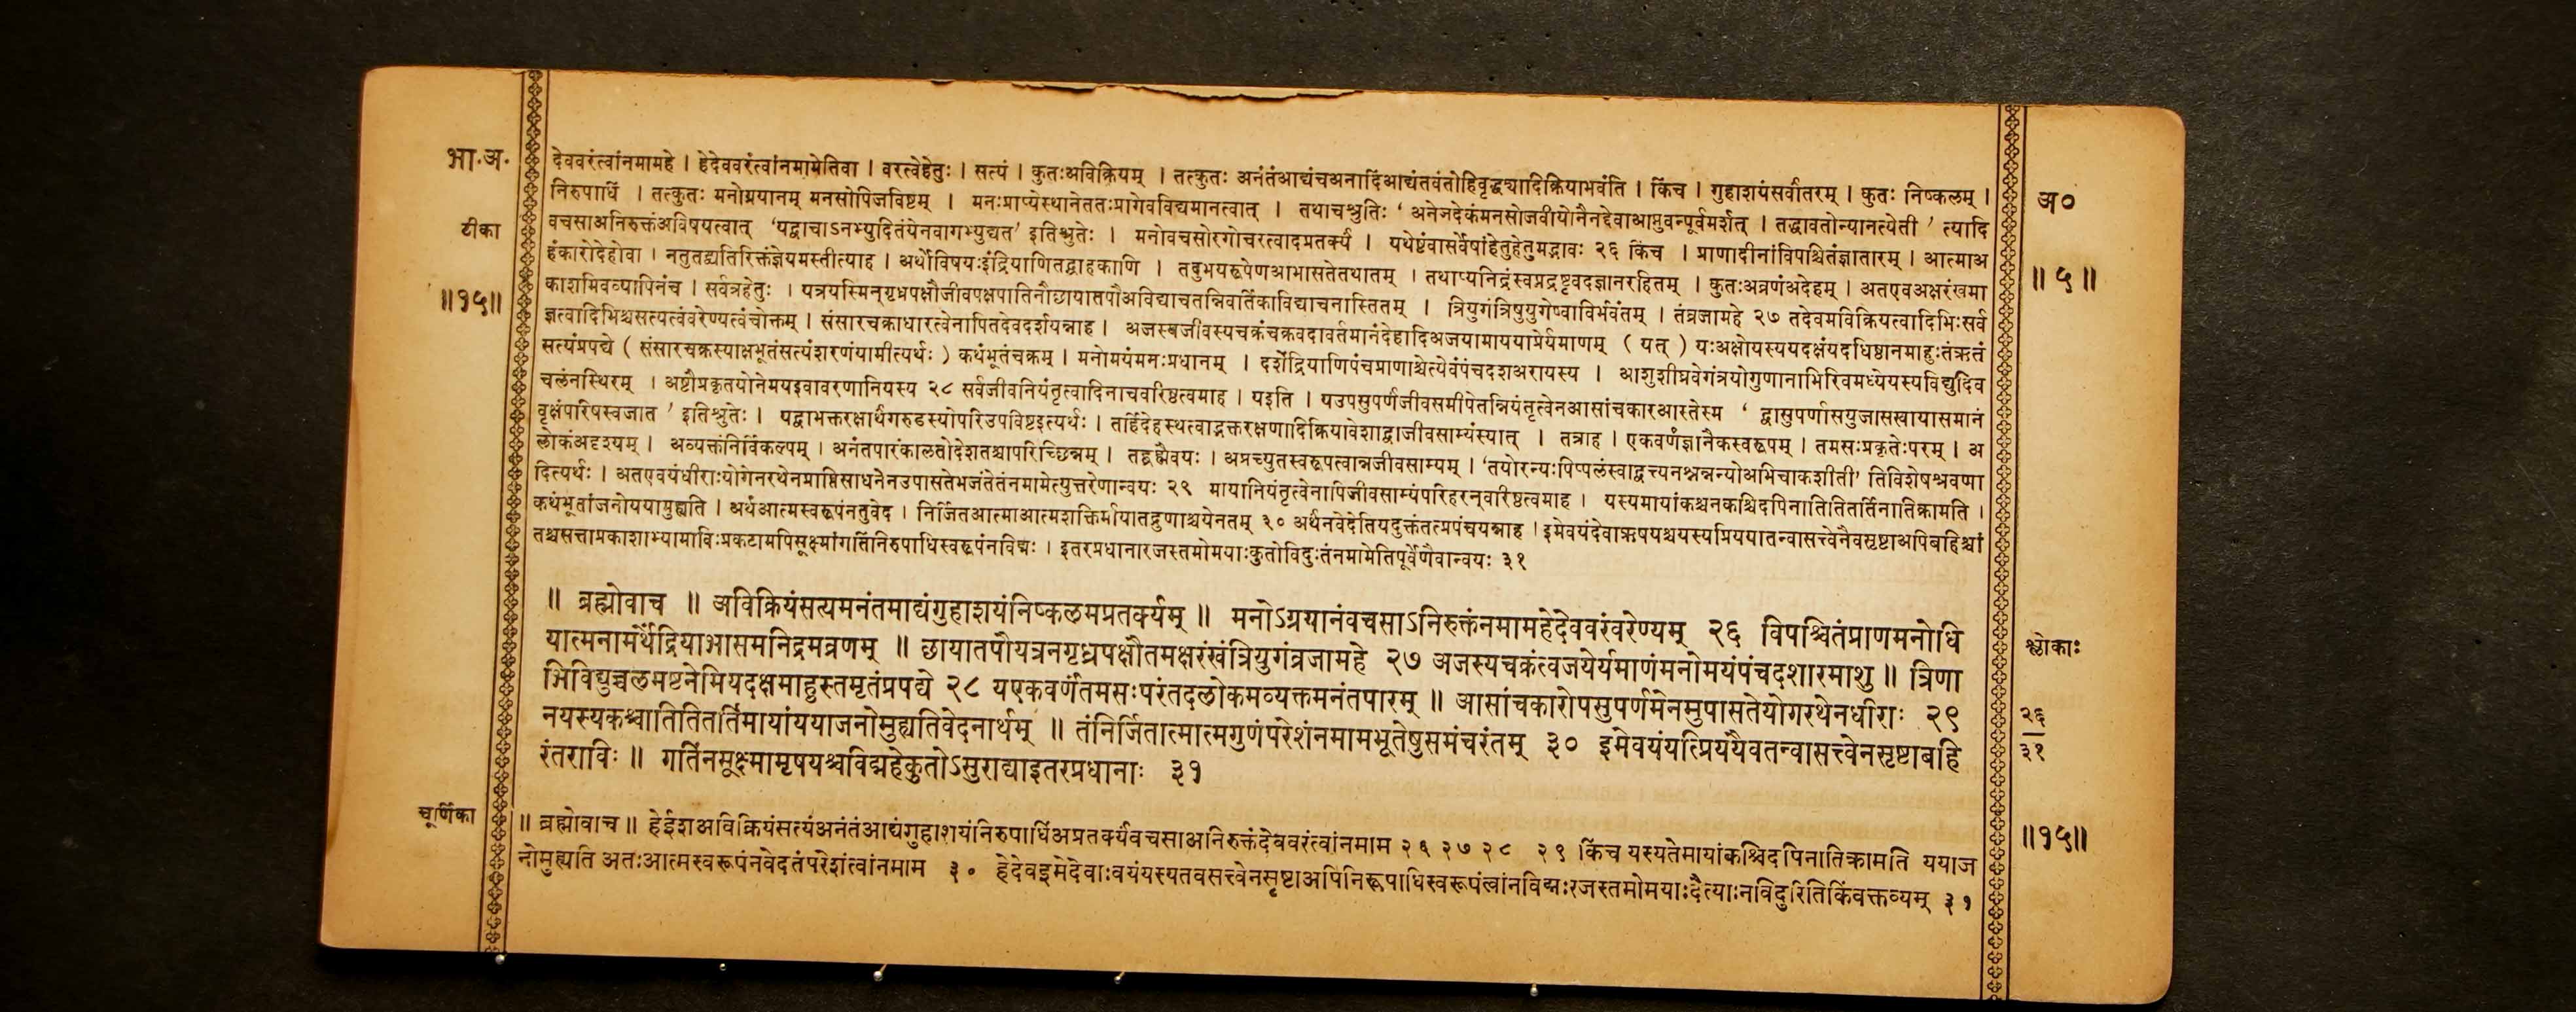 भा.अ.
टीका
॥१५॥
देववरंत्वांनमामहे । हेदेववरंत्वांनमामेतिवा । वरत्वेहेतुः । सत्यं । कुतःअविक्रियम् । तत्कुतः अनंतंआद्यंचअनादिंआद्यंतवंतोहिवृद्ध्यादिक्रियाभवंति । किंच । गुहाशयंसर्वांतरम् । कुतः निष्कलम् ।
निरुपाधिं । तत्कुतः मनोग्रयानम् मनसोपिजविष्टम् । मनःप्राप्येस्थानेततःप्रागेवविद्यमानत्वात् । तथाचश्रुतिः ‘ अनेजदेकंमनसोजवीयोनैनद्देवाआप्नुवन्पूर्वमर्शत् । तद्धावतोन्यानत्येती ’ त्यादि
वचसाअनिरुक्तंअविषयत्वात् ‘यद्वाचाऽनभ्युदितंयेनवागभ्युद्यत’ इतिश्रुतेः । मनोवचसोरगोचरत्वादप्रतर्क्यं । यथेष्टंवासर्वेषांहेतुहेतुमद्भावः २६ किंच । प्राणादीनांविपश्चितंज्ञातारम् । आत्माअ
हंकारोदेहोवा । नतुतद्व्यतिरिक्तंज्ञेयमस्तीत्याह । अर्थोविषयःइंद्रियाणितद्ग्राहकाणि । तदुभयरूपेणआभासतेतथातम् । तथाप्यनिद्रंस्वप्नद्रष्टृवदज्ञानरहितम् । कुतःअव्रणंअदेहम् । अतएवअक्षरंखमा
काशमिवव्यापिनंच । सर्वत्रहेतुः । यत्रयस्मिन्गृध्रपक्षौजीवपक्षपातिनौछायातपौअविद्याचतन्निवर्तिकाविद्याचनास्तितम् । त्रियुगंत्रिषुयुगेष्वाविर्भवंतम् । तंव्रजामहे २७ तदेवमविक्रियत्वादिभिःसर्व
ज्ञत्वादिभिश्चसत्यत्वंवरेण्यत्वंचोक्तम् । संसारचक्राधारत्वेनापितदेवदर्शयन्नाह । अजस्यजीवस्यचक्रंचक्रवदावर्तमानंदेहादिअजयामाययाप्रेर्यमाणम् ( यत् ) यःअक्षोयस्ययदक्षंयदधिष्ठानमाहुःतंऋतं
सत्यंप्रपद्ये ( संसारचक्रस्याक्षभूतंसत्यंशरणंयामीत्यर्थः ) कथंभूतंचक्रम् । मनोमयंमनःप्रधानम् । दशेंद्रियाणिपंचप्राणाश्चेत्येवंपंचदशअरायस्य । आशुशीघ्रवेगंत्रयोगुणानाभिरिवमध्येयस्यविद्युदिव
चलंनस्थिरम् । अष्टौप्रकृतयोनेमयइवावरणानियस्य २८ सर्वजीवनियंतृत्वादिनाचवरिष्ठत्वमाह । यइति । यउपसुपर्णंजीवसमीपेतन्नियंतृत्वेनआसांचकारआस्तेस्म ‘ द्वासुपर्णासयुजासखायासमानं
वृक्षंपरिषस्वजात ’ इतिश्रुतेः । यद्वाभक्तरक्षार्थंगरुडस्योपरिउपविष्टइत्यर्थः । तर्हिदेहस्थत्वाद्भक्तरक्षणादिक्रियावेशाद्वाजीवसाम्यंस्यात् । तत्राह । एकवर्णंज्ञानैकस्वरूपम् । तमसःप्रकृतेःपरम् । अ
लोकंअदृश्यम् । अव्यक्तंनिर्विकल्पम् । अनंतपारंकालतोदेशतश्चापरिच्छिन्नम् । तद्ब्रह्मैवयः । अप्रच्युतस्वरूपत्वान्नजीवसाम्यम् । ‘तयोरन्यःपिप्पलंस्वाद्वत्त्यनश्नन्नन्योअभिचाकशीती’ तिविशेषश्रवणा
दित्यर्थः । अतएवयंधीराःयोगेनरथेनप्राप्तिसाधनेनउपासतेभजंतेतंनमामेत्युत्तरेणान्वयः २९ मायानियंतृत्वेनापिजीवसाम्यंपरिहरन्वरिष्ठत्वमाह । यस्यमायांकश्चनकश्चिदपिनातितितर्तिनातिक्रामति ।
कथंभूतांजनोययामुह्यति । अर्थंआत्मस्वरूपंनतुवेद । निर्जितआत्माआत्मशक्तिर्मायातद्गुणाश्चयेनतम् ३० अर्थंनवेदेतियदुक्तंतत्प्रपंचयन्नाह । इमेवयंदेवाऋषयश्चयस्यप्रिययातन्वासत्त्वेनैवसृष्टाअपिबहिश्चां
तश्चसत्ताप्रकाशाभ्यामाविःप्रकटामपिसूक्ष्मांगतिंनिरुपाधिस्वरूपंनविद्मः । इतरप्रधानारजस्तमोमयाःकुतोविदुःतंनमामेतिपूर्वेणैवान्वयः ३१
॥ ब्रह्मोवाच ॥ अविक्रियंसत्यमनंतमाद्यंगुहाशयंनिष्कलमप्रतर्क्यम् ॥ मनोऽग्रयानंवचसाऽनिरुक्तंनमामहेदेववरंवरेण्यम् २६ विपश्चितंप्राणमनोधि
यात्मनामर्थेंद्रियाभासमनिद्रमव्रणम् ॥ छायातपौयत्रनगृध्रपक्षौतमक्षरंखंत्रियुगंव्रजामहे २७ अजस्यचक्रंत्वजयेर्यमाणंमनोमयंपंचदशारमाशु ॥ त्रिणा
भिविद्युच्चलमष्टनेमियदक्षमाहुस्तमृतंप्रपद्ये २८ यएकवर्णंतमसःपरंतदलोकमव्यक्तमनंतपारम् ॥ आसांचकारोपसुपर्णमेनमुपासतेयोगरथेनधीराः २९
नयस्यकश्चातितितर्तिमायांययाजनोमुह्यतिवेदनार्थम् ॥ तंनिर्जितात्मात्मगुणंपरेशंनमामभूतेषुसमंचरंतम् ३० इमेवयंयत्प्रिययैवतन्वासत्त्वेनसृष्टाबहि
रंतराविः ॥ गतिंनसूक्ष्मामृषयश्चविद्महेकुतोऽसुराद्याइतरप्रधानाः ३१
चूर्णिका
॥ ब्रह्मोवाच ॥ हेईशअविक्रियंसत्यंअनंतंआद्यंगुहाशयंनिरुपाधिंअप्रतर्क्यंवचसाअनिरुक्तंदेववरंत्वांनमाम २६ २७ २८ २९ किंच यस्यतेमायांकश्चिदपिनातिक्रामति ययाज
नोमुह्यति अतःआत्मस्वरूपंनवेदतंपरेशंत्वांनमाम ३० हेदेवइमेदेवाःवयंयस्यतवसत्त्वेनसृष्टाअपिनिरूपाधिस्वरूपंत्वांनविद्मःरजस्तमोमयाःदैत्याःनविदुरितिकिंवक्तव्यम् ३१
अ०
॥ ५ ॥
श्लोकाः
२६
३१
॥१५॥